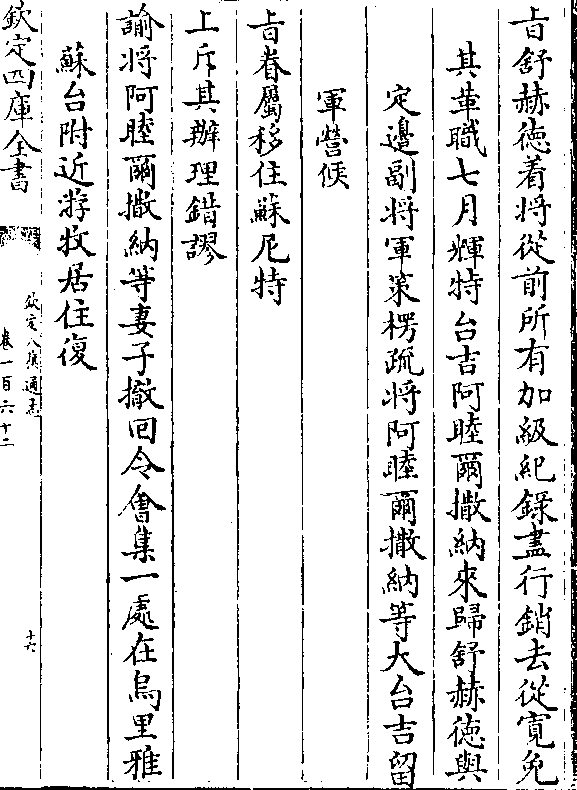 旨舒赫德着將從前所有加級紀錄盡行銷去從寬免
其革職七月輝特台吉阿睦爾撒納來歸舒赫德與
定邊副將軍策楞疏將阿睦爾撒納等大台吉留
軍營候
旨眷屬移住蘇尼特
上斥其辦理錯謬
諭將阿睦爾撒納等妻子撤回令會集一處在烏里雅
蘇台附近游牧居住復
欽定四庫全書
欽定八旗通志
卷一百六十二
十六